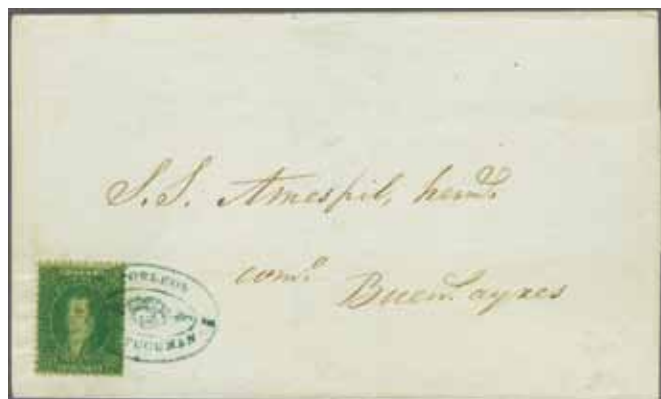 S.S. Amespil, herm.ᵒˢ
com.ᵒ
Buen.ˢ ayres
CORREOS
TUCUMAN